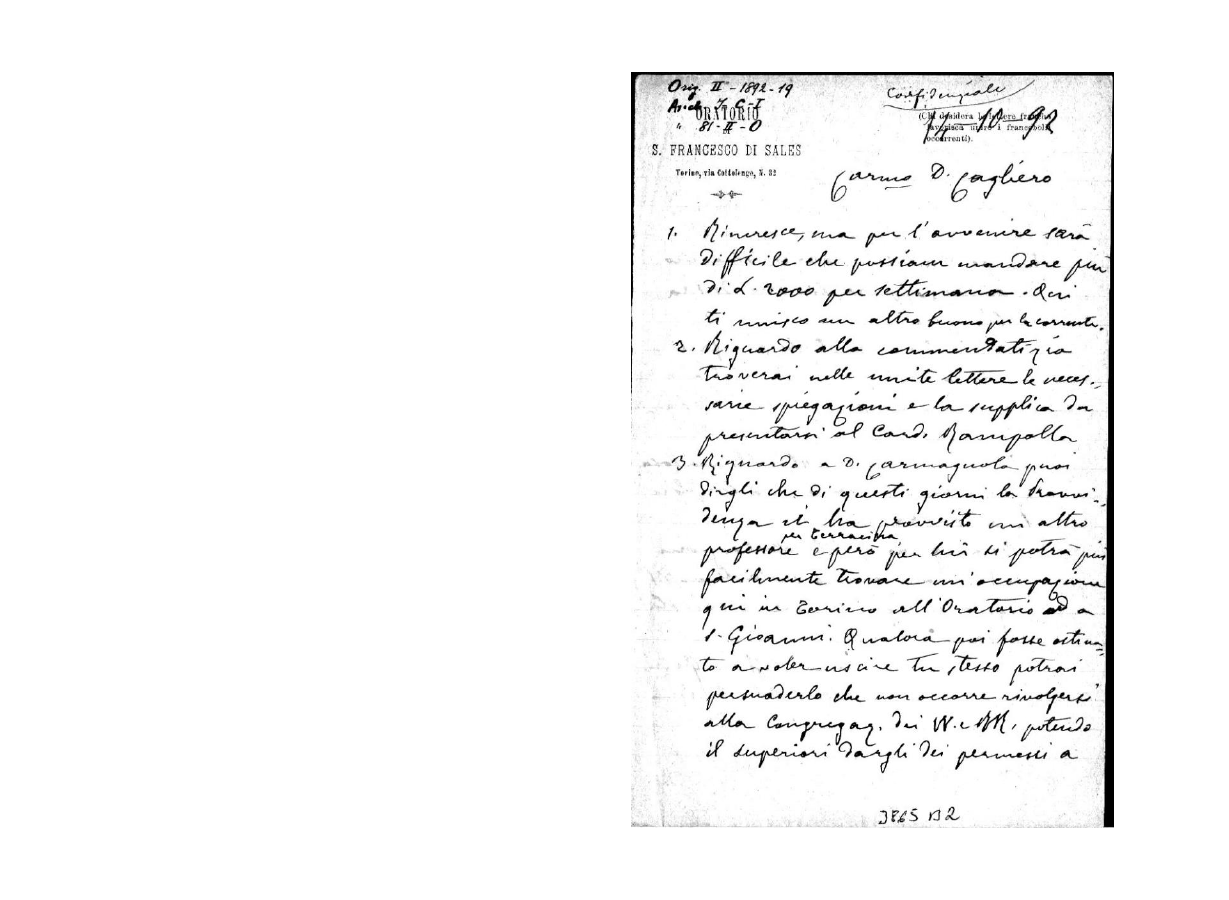 Orig. II - 1892-19
Confidenziale
ORATORIO
" 81-II-O
14-10-92
(Chi desidera la lettera
favorisca unire i francobolli
occorrenti).
S. FRANCESCO DI SALES
Torino, via Cottolengo, N. 32
Carmo D. Cagliero
1. Rincresce, ma per l'avvenire sarà
difficile che possiam mandare più
di L. 2000 per settimana. Qui
ti unisco un altro buono per la corrente.
2. Riguardo alla commendatizia
troverai nelle unite lettere le neces-
sarie spiegazioni e la supplica da
presentarsi al Card. Rampolla
3. Riguardo a D. Carmagnola puoi
dirgli che di questi giorni la Provvi-
denza ci ha provvisto un altro
per Terracina
professore e però per lui si potrà più
facilmente trovare un'occupazione
qui in Torino all'Oratorio od a
S. Gioanni. Qualora poi fosse ostina-
to a voler uscire tu stesso potrai
persuaderlo che non occorre rivolgersi
alla Congregaz. dei VV. e RR. potendo
il superiori dargli dei permessi a
3865 B2